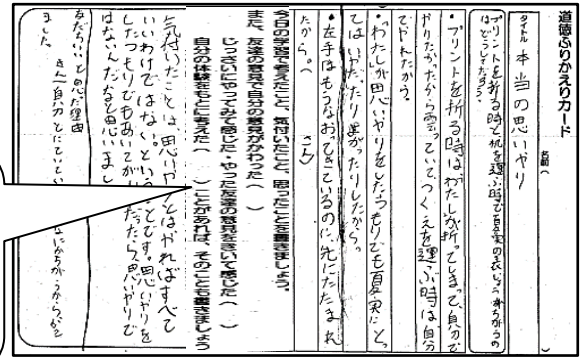 道徳ふりかえりカード
名前（
タイトル 本当の思いやり
プリントを折る時と机を運ぶ時で夏実の表じょうがちがうの
はどうしてだろう。
・プリントを折る時はわたしが折ってしまって、自分で
やりたかったから
つくえを運ぶ時は、自分
でやれたから。
・わたしが思いやりをしたつもりでも夏実にとっ
ては いやだったり
たりしたから。
・左手はもうなおってきているのに、先にたたまれ
たから。（
今日の学習で考えたこと、気付いたこと、思ったことを書きましょう。
また、友達の意見で自分の意見がかわった（　）
じっさいにやってみて感じた・やった友達の意見をきいて感じた（　）
自分の体験をもとに考えた（　）ことがあれば、そのことも書きましょう
気付いたことは、思いやりとはやればすべて
いいわけではないということです。思いやりを
したつもりでもあいてが
だったら、思いやりで
はないんだなと思いまし
友だちいいと思った理由
さんは自分とにていてい
ました。